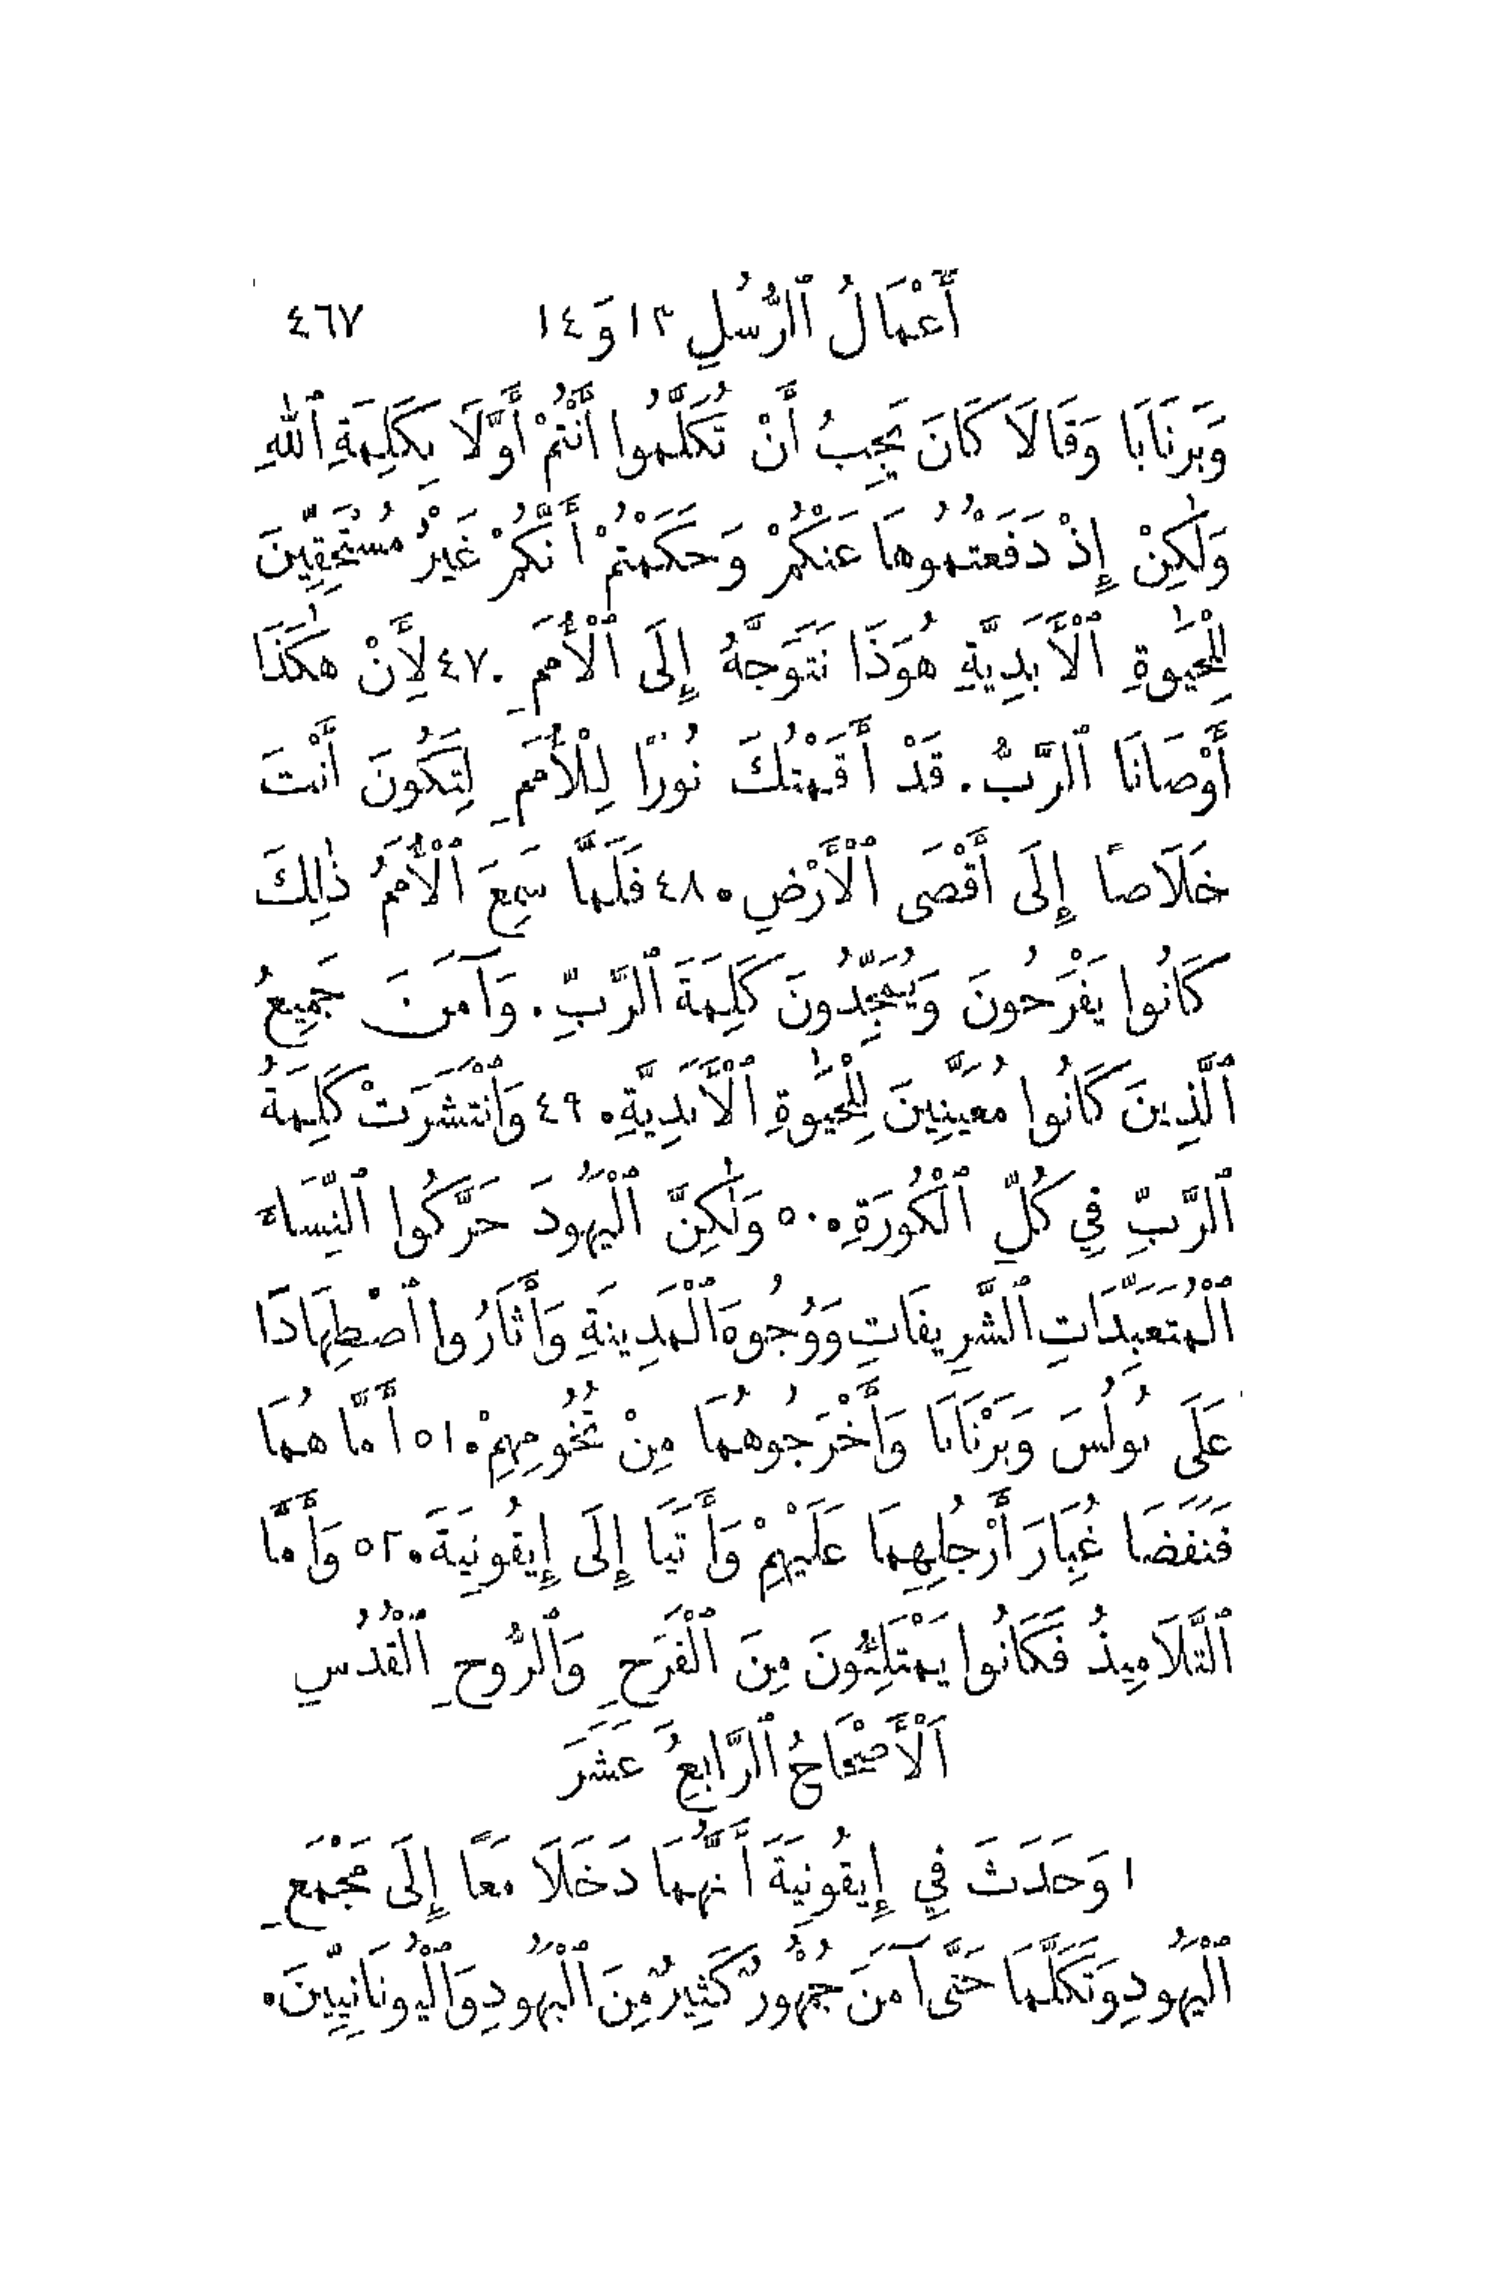 أَعْمَالُ ٱلرُّسُلِ ١٣ وَ ١٤ ٤٦٧
وَبَرْنَابَا وَقَالَا كَانَ يَجِبُ أَنْ تُكَلَّمُوا أَنْتُمْ أَوَّلَا بِكَلِمَةِ ٱللهِ
وَلٰكِنْ إِذْ دَفَعْتُمُوهَا عَنْكُمْ وَحَكَمْتُمْ أَنَّكُمْ غَيْرُ مُسْتَحِقِّينَ
لِلْحَيٰوةِ ٱلْأَبَدِيَّةِ هُوَذَا نَتَوَجَّهُ إِلَى ٱلْأُمَمِ. ٤٧ لِأَنْ هٰكَذَا
أَوْصَانَا ٱلرَّبُّ. قَدْ أَقَمْتُكَ نُورًا لِلْأُمَمِ لِتَكُونَ أَنْتَ
خَلَاصًا إِلَى أَقْصَى ٱلْأَرْضِ. ٤٨ فَلَمَّا سَمِعَ ٱلْأُمَمُ ذٰلِكَ
كَانُوا يَفْرَحُونَ وَيُمَجِّدُونَ كَلِمَةَ ٱلرَّبِّ. وَآمَنَ جَمِيعُ
ٱلَّذِينَ كَانُوا مُعَيَّنِينَ لِلْحَيٰوةِ ٱلْأَبَدِيَّةِ. ٤٩ وَٱنْتَشَرَتْ كَلِمَةُ
ٱلرَّبِّ فِي كُلِّ ٱلْكُورَةِ. ٥٠ وَلٰكِنَّ ٱلْيَهُودَ حَرَّكُوا ٱلنِّسَاءَ
ٱلْمُتَعَبِّدَاتِ ٱلشَّرِيفَاتِ وَوُجُوهَ ٱلْمَدِينَةِ وَأَثَارُوا ٱضْطِهَادًا
عَلَى بُولُسَ وَبَرْنَابَا وَأَخْرَجُوهُمَا مِنْ تُخُومِهِمْ. ٥١ أَمَّا هُمَا
فَنَفَضَا غُبَارَ أَرْجُلِهِمَا عَلَيْهِمْ وَأَتَيَا إِلَى إِيقُونِيَةَ. ٥٢ وَأَمَّا
ٱلتَّلَامِيذُ فَكَانُوا يَمْتَلِئُونَ مِنَ ٱلْفَرَحِ وَٱلرُّوحِ ٱلْقُدُسِ
اَلْأَصْحَاحُ ٱلرَّابِعُ عَشَرَ
١ وَحَدَثَ فِي إِيقُونِيَةَ أَنَّهُمَا دَخَلَا مَعًا إِلَى مَجْمَعِ
ٱلْيَهُودِ وَتَكَلَّمَا حَتَّى آمَنَ جُمْهُورٌ كَثِيرٌ مِنَ ٱلْيَهُودِ وَٱلْيُونَانِيِّينَ.